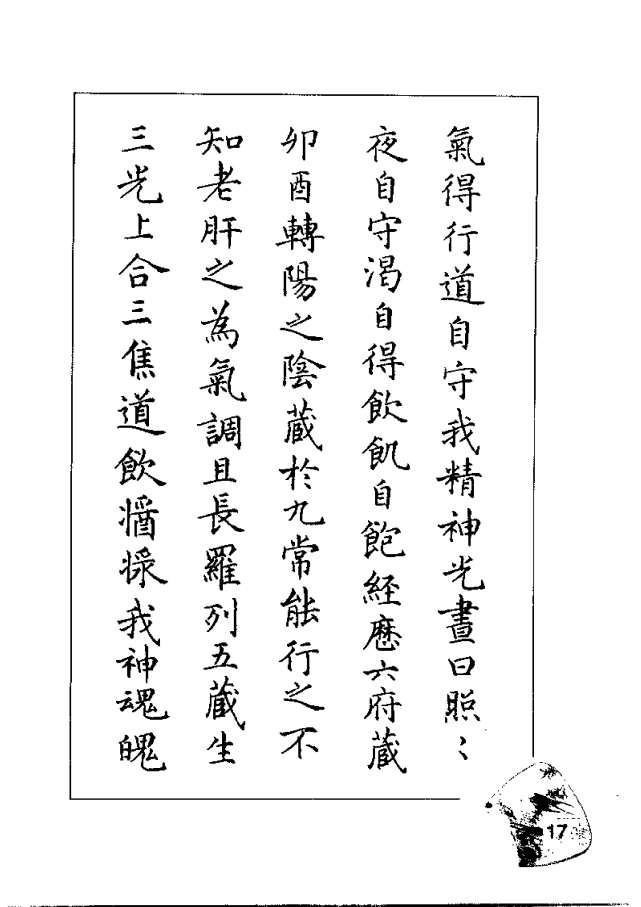 氣得行道自守我精神光晝日照〻
夜自守渴自得飲飢自飽経歷六府藏
卯酉轉陽之陰藏於九常能行之不
知老肝之為氣調且長羅列五藏生
三光上合三焦道飲醬漿我神魂魄
17